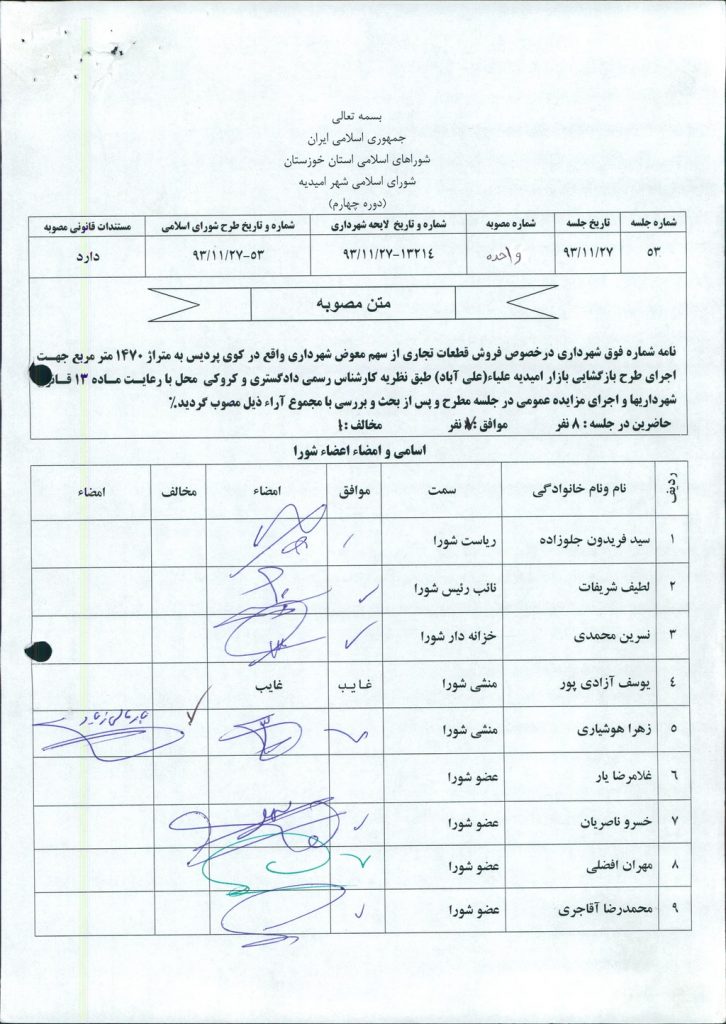 بسمه تعالی
جمهوری اسلامی ایران
شوراهای اسلامی استان خوزستان
شورای اسلامی شهر امیدیه
(دوره چهارم)
شماره جلسه تاریخ جلسه شماره مصوبه شماره و تاریخ لایحه شهرداری شماره و تاریخ طرح شورای اسلامی مستندات قانونی مصوبه
۵۳ ۹۳/۱۱/۲۷ واحده ۹۳/۱۱/۲۷-۱۳۲۱٤ ۹۳/۱۱/۲۷-۵۳ دارد
متن مصوبه
نامه شماره فوق شهرداری درخصوص فروش قطعات تجاری از سهم معوض شهرداری واقع در کوی پردیس به متراژ ۱۴۷۰ متر مربع جهت
اجرای طرح بازگشایی بازار امیدیه علیاء(علی آباد) طبق نظریه کارشناس رسمی دادگستری و کروکی محل با رعایت ماده ۱۳
شهرداریها و اجرای مزایده عمومی در جلسه مطرح و پس از بحث و بررسی با مجموع آراء ذیل مصوب گردید.٪
حاضرین در جلسه : ۸ نفر موافق: نفر مخالف :
اسامی و امضاء اعضاء شورا
ردیف نام ونام خانوادگی سمت موافق امضاء مخالف امضاء
۱ سید فریدون جلوزاده ریاست شورا
۲ لطیف شریفات نائب رئیس شورا
۳ نسرین محمدی خزانه دار شورا
٤ یوسف آزادی پور منشی شورا غایب غایب
۵ زهرا هوشیاری منشی شورا
٦ غلامرضا یار عضو شورا
۷ خسرو ناصریان عضو شورا
۸ مهران افضلی عضو شورا
۹ محمدرضا آقاجری عضو شورا